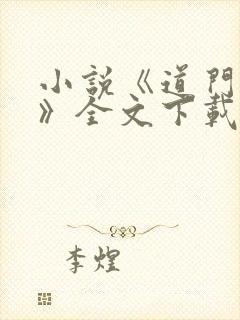 小説《道門
》全文下載
李煌